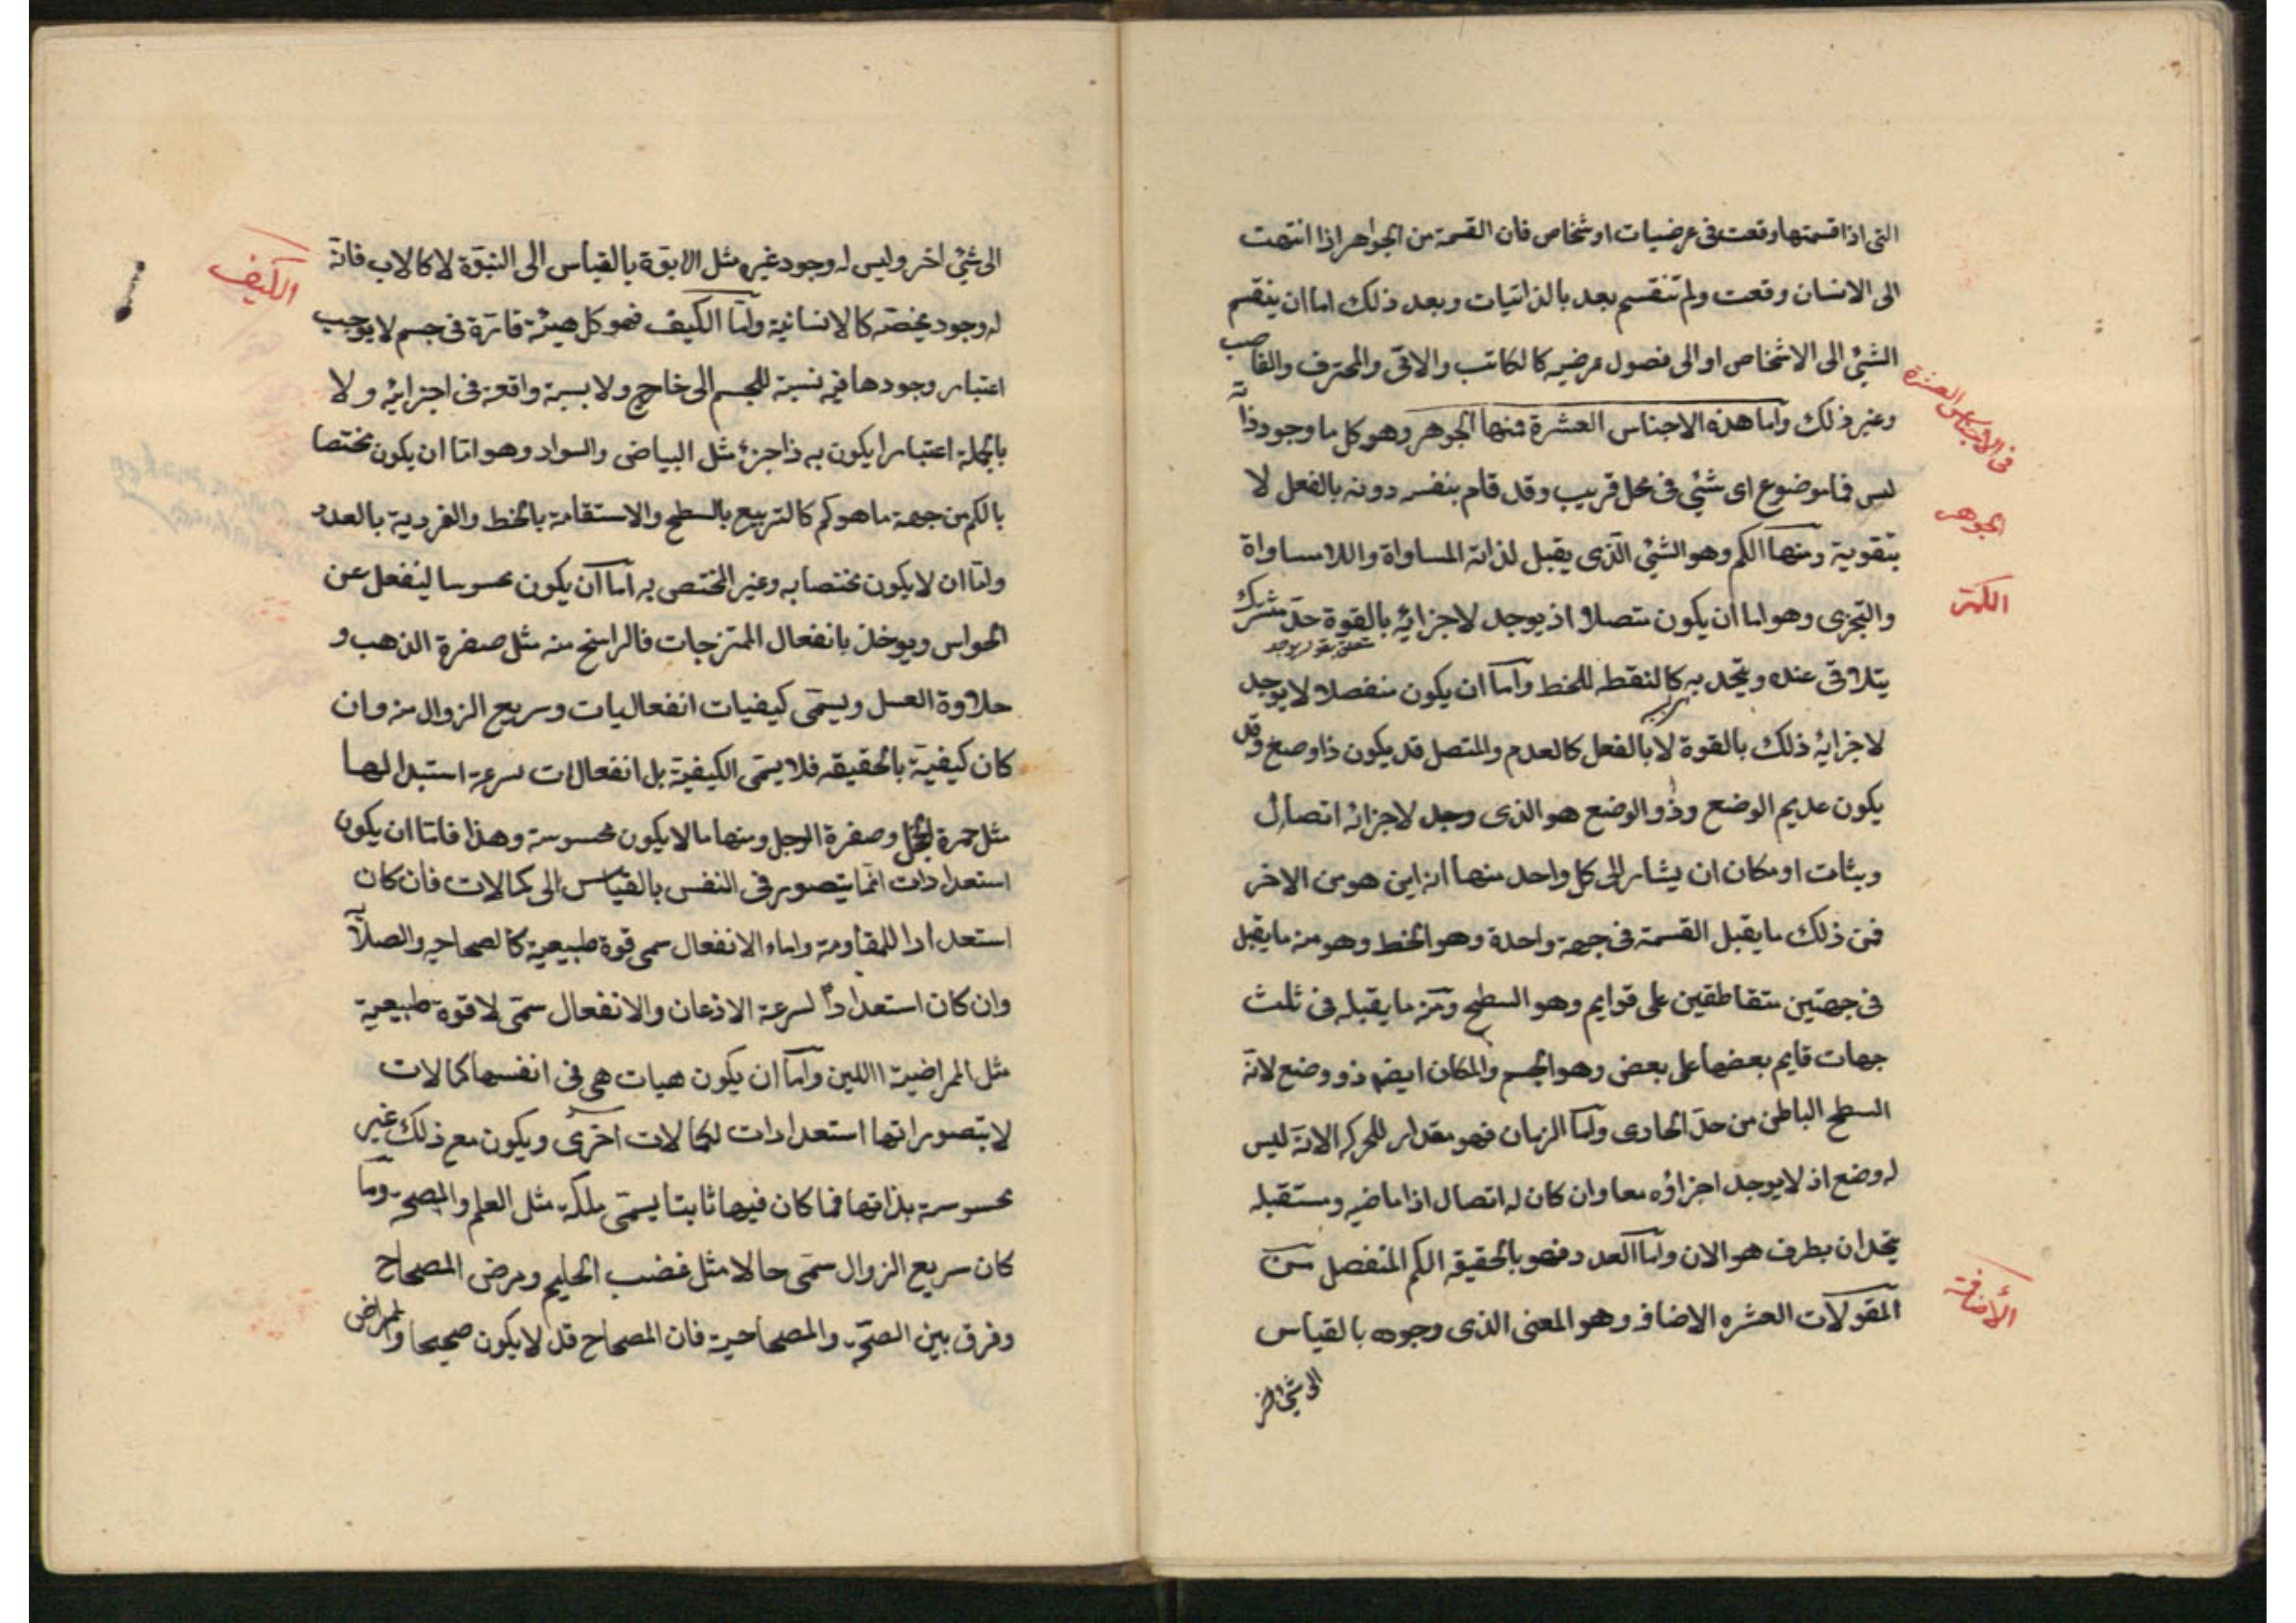 التى اذا قسمتها وقعت فى عرضيات او شخاص فان القسمة من الجواهر اذا انتهت
الى الانسان وقعت ولم تنقسم بعد بالذاتيات وبعد ذلك اما ان ينقسم
الشئ الى الاشخاص او الى فصول عرضيه كالكاتب والاقى والمحترف والغاصب
فى الأجناس العشرة
وغير ذلك واما هذه الاجناس العشرة فمنها الجوهر وهو كل ما وجود ذاته
ليس فى موضوع اى شئ فى محل قريب وقد قام بنفسه دونه بالفعل لا
الجوهر
بتقويته ومنها الكم وهو الشئ الذى يقبل لذاته المساواة واللامساواة
الكم
والتجزى وهو اما ان يكون متصلا اذ يوجد لاجزائه بالقوة حد مشترك
يتلاقى عنده ويتحد به كالنقطه للخط واما ان يكون منفصلا لا يوجد
لاجزايه ذلك بالقوة لا بالفعل كالعدم والمتصل قد يكون ذا وضع وقد
يكون عديم الوضع وذو الوضع هو الذى وجد لاجزائه اتصال
وبثات او مكان ان يشار الى كل واحد منها انه اين هو من الاخر
فمن ذلك ما يقبل القسمة فى جهة واحدة وهو الخط وهو منه ما يقبل
فى جهتين متقاطقين على قوايم وهو السطح ومنه ما يقبله فى ثلث
جهات قايم بعضها على بعض وهو الجسم والمكان ايضا ذو وضع لانه
السطح الباطن من حد الحاوى واما الزمان فهو مقدار للحركه الا انه ليس
له وضع اذ لا يوجد اجزاؤه معا وان كان له اتصال اذا ماضيه ومستقبله
يتحدان بطرف هو الان واما العدد فهو بالحقيقه الكم المنفصل من
المقولات العشره الاضافه وهو المعنى الذى وجوده بالقياس
الأضافة
الى شئ اخر
الى شئ اخر وليس له وجود غيره مثل الابوة بالقياس الى النبوة لا كالاب فانه
الكيف
له وجود يخصه كالانسانية واما الكيف فهو كل هيئة قارة فى جسم لا يوجب
اعتبار وجودها فيه نسبة للجسم الى خارج ولا نسبة واقعة فى اجزائه ولا
بالجملة اعتبارا يكون به ذا جزء مثل البياض والسواد وهو اما ان يكون مختصا
بالكم من جهة ما هو كم كالتربيع بالسطح والاستقامة بالخط والفردية بالعدد
واما ان لا يكون مختصا به وغير المختص به اما ان يكون محسوسا لينفعل عن
الحواس ويوخذ بانفعال الممتزجات فالراسخ منه مثل صفرة الذهب و
حلاوة العسل ويسمى كيفيات انفعاليات وسريع الزوال منه وان
كان كيفية بالحقيقه فلا يسمى الكيفية بل انفعالات لسرعة استبدالها
مثل حمرة الخجل وصفرة الوجل ومنها ما لا يكون محسوسة وهذا فاما ان يكون
استعدادات انما يتصور فى النفس بالقياس الى كمالات فان كان
استعدادا للمقاومة واماء الانفعال سمى قوة طبيعية كالصحاحيه والصلا
وان كان استعدادا لسرعة الاذعان والانفعال سمى لا قوة طبيعية
مثل المراضية االلين واما ان يكون هيات هى فى انفسها كمالات
لا يتصور انها استعدادات لكمالات اخرى ويكون مع ذلك غير
محسوسة بذاتها فما كان فيها ثابتا يسمى ملكة مثل العلم والصحه وما
كان سريع الزوال سمى حالا مثل غضب الحليم ومرض المصحاح
وفرق بين الصحة والمصحاحية فان المصحاح قد لا يكون صحيحا والممراض